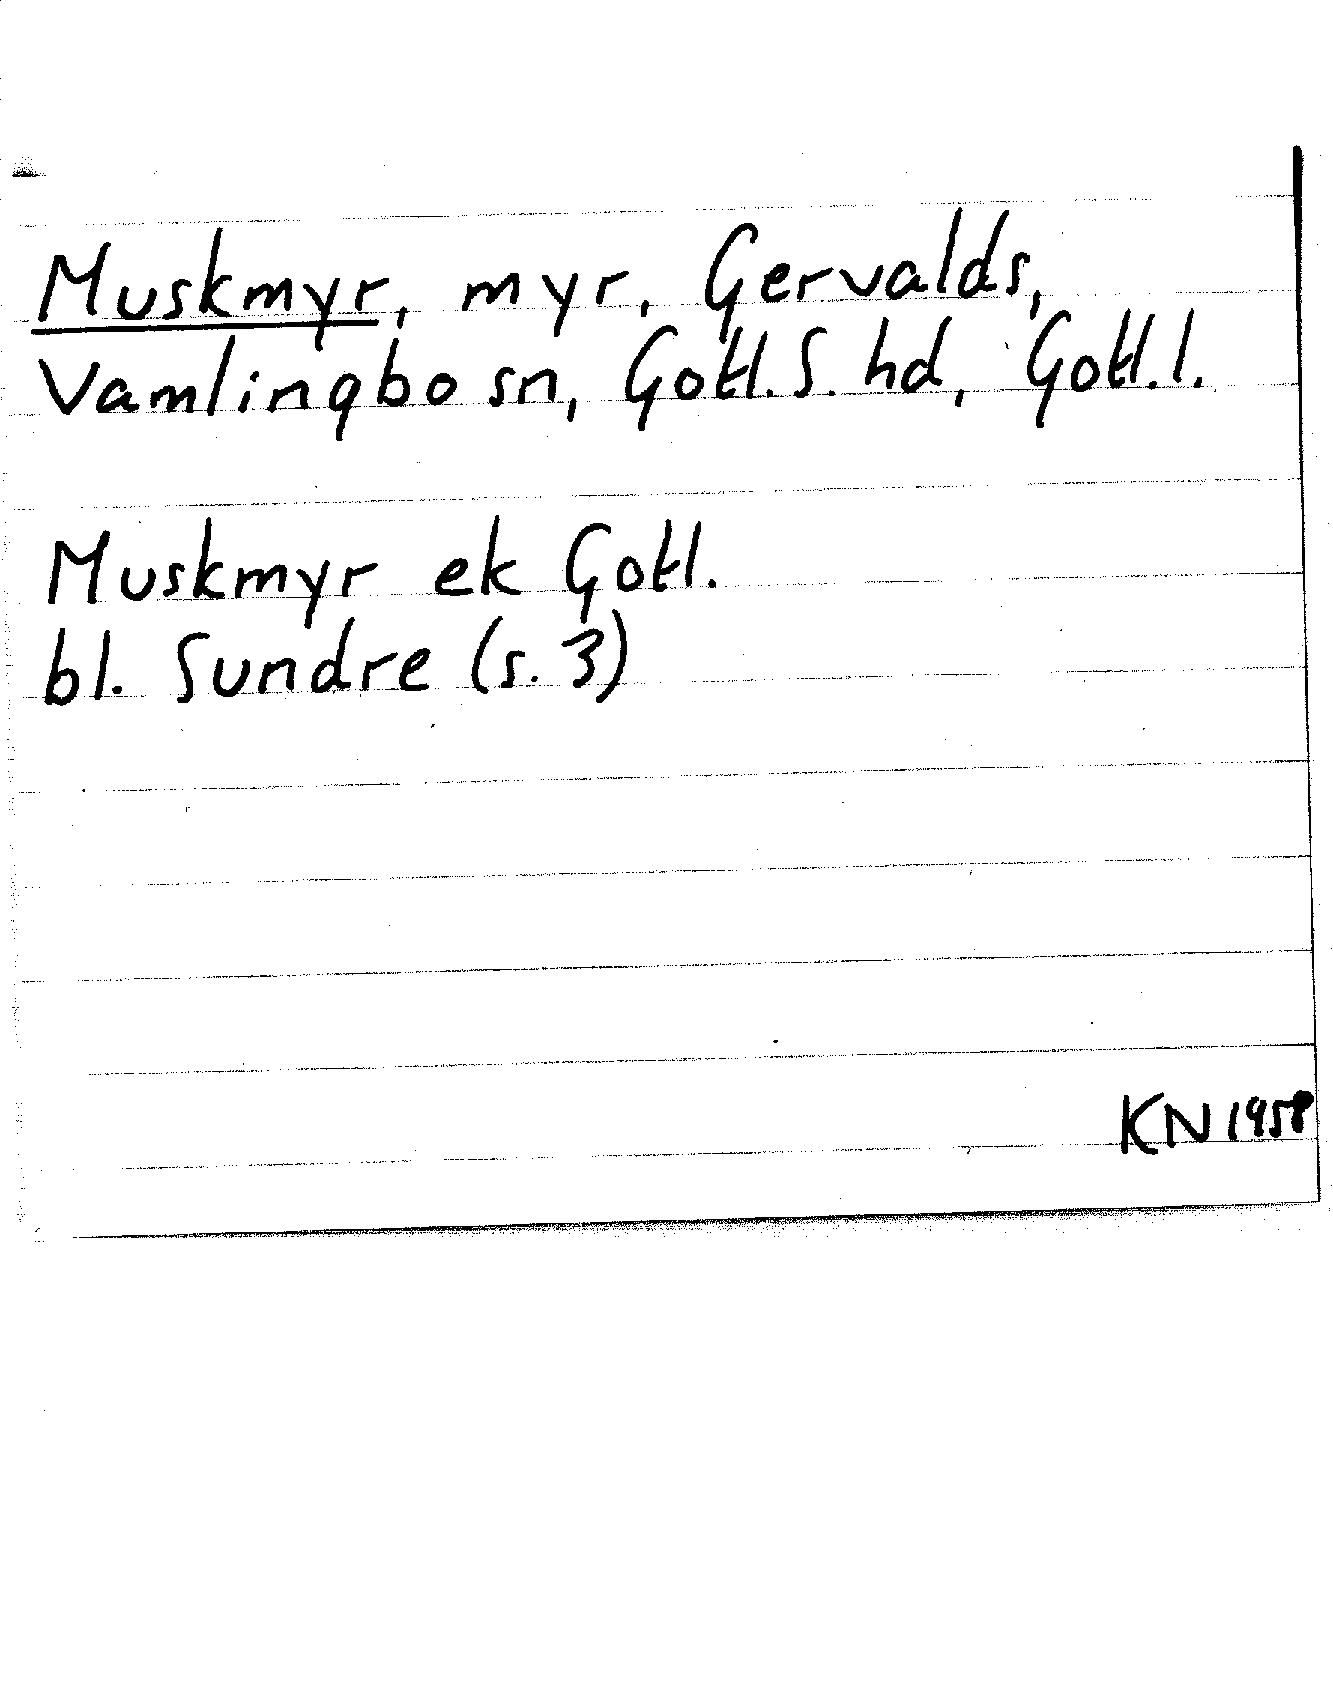 Muskmyr, myr, Gervalds,
Vamlingbo sn, Gotl. S. hd, Gotl. l.
Muskmyr ek Gotl.
bl. Sundre (s. 3)
KN 1958